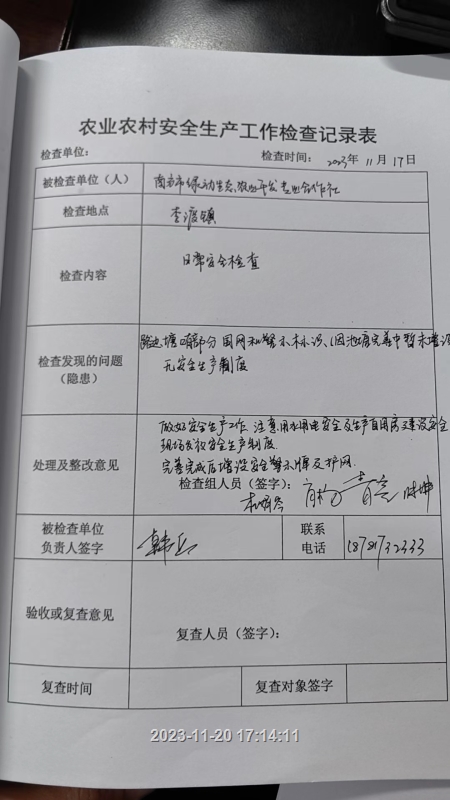 农业农村安全生产工作检查记录表
检查单位： 检查时间： 2023年 11月 17日
被检查单位（人） 南充市绿动生态农业开发专业合作社
检查地点 李渡镇
检查内容 日常安全检查
检查发现的问题 路边塘 部分 围网和警示标识、(因池塘完善中暂未增设
（隐患） 无安全生产制度
做好安全生产工作 注意用水用电安全及生产自用房建设安全
现场发放安全生产制度
处理及整改意见 完善完成后增设安全警示牌及护网.
检查组人员（签字）：
被检查单位 联系
负责人签字 电话
验收或复查意见
复查人员（签字）：
复查时间 复查对象签字
2023-11-20 17:14:11